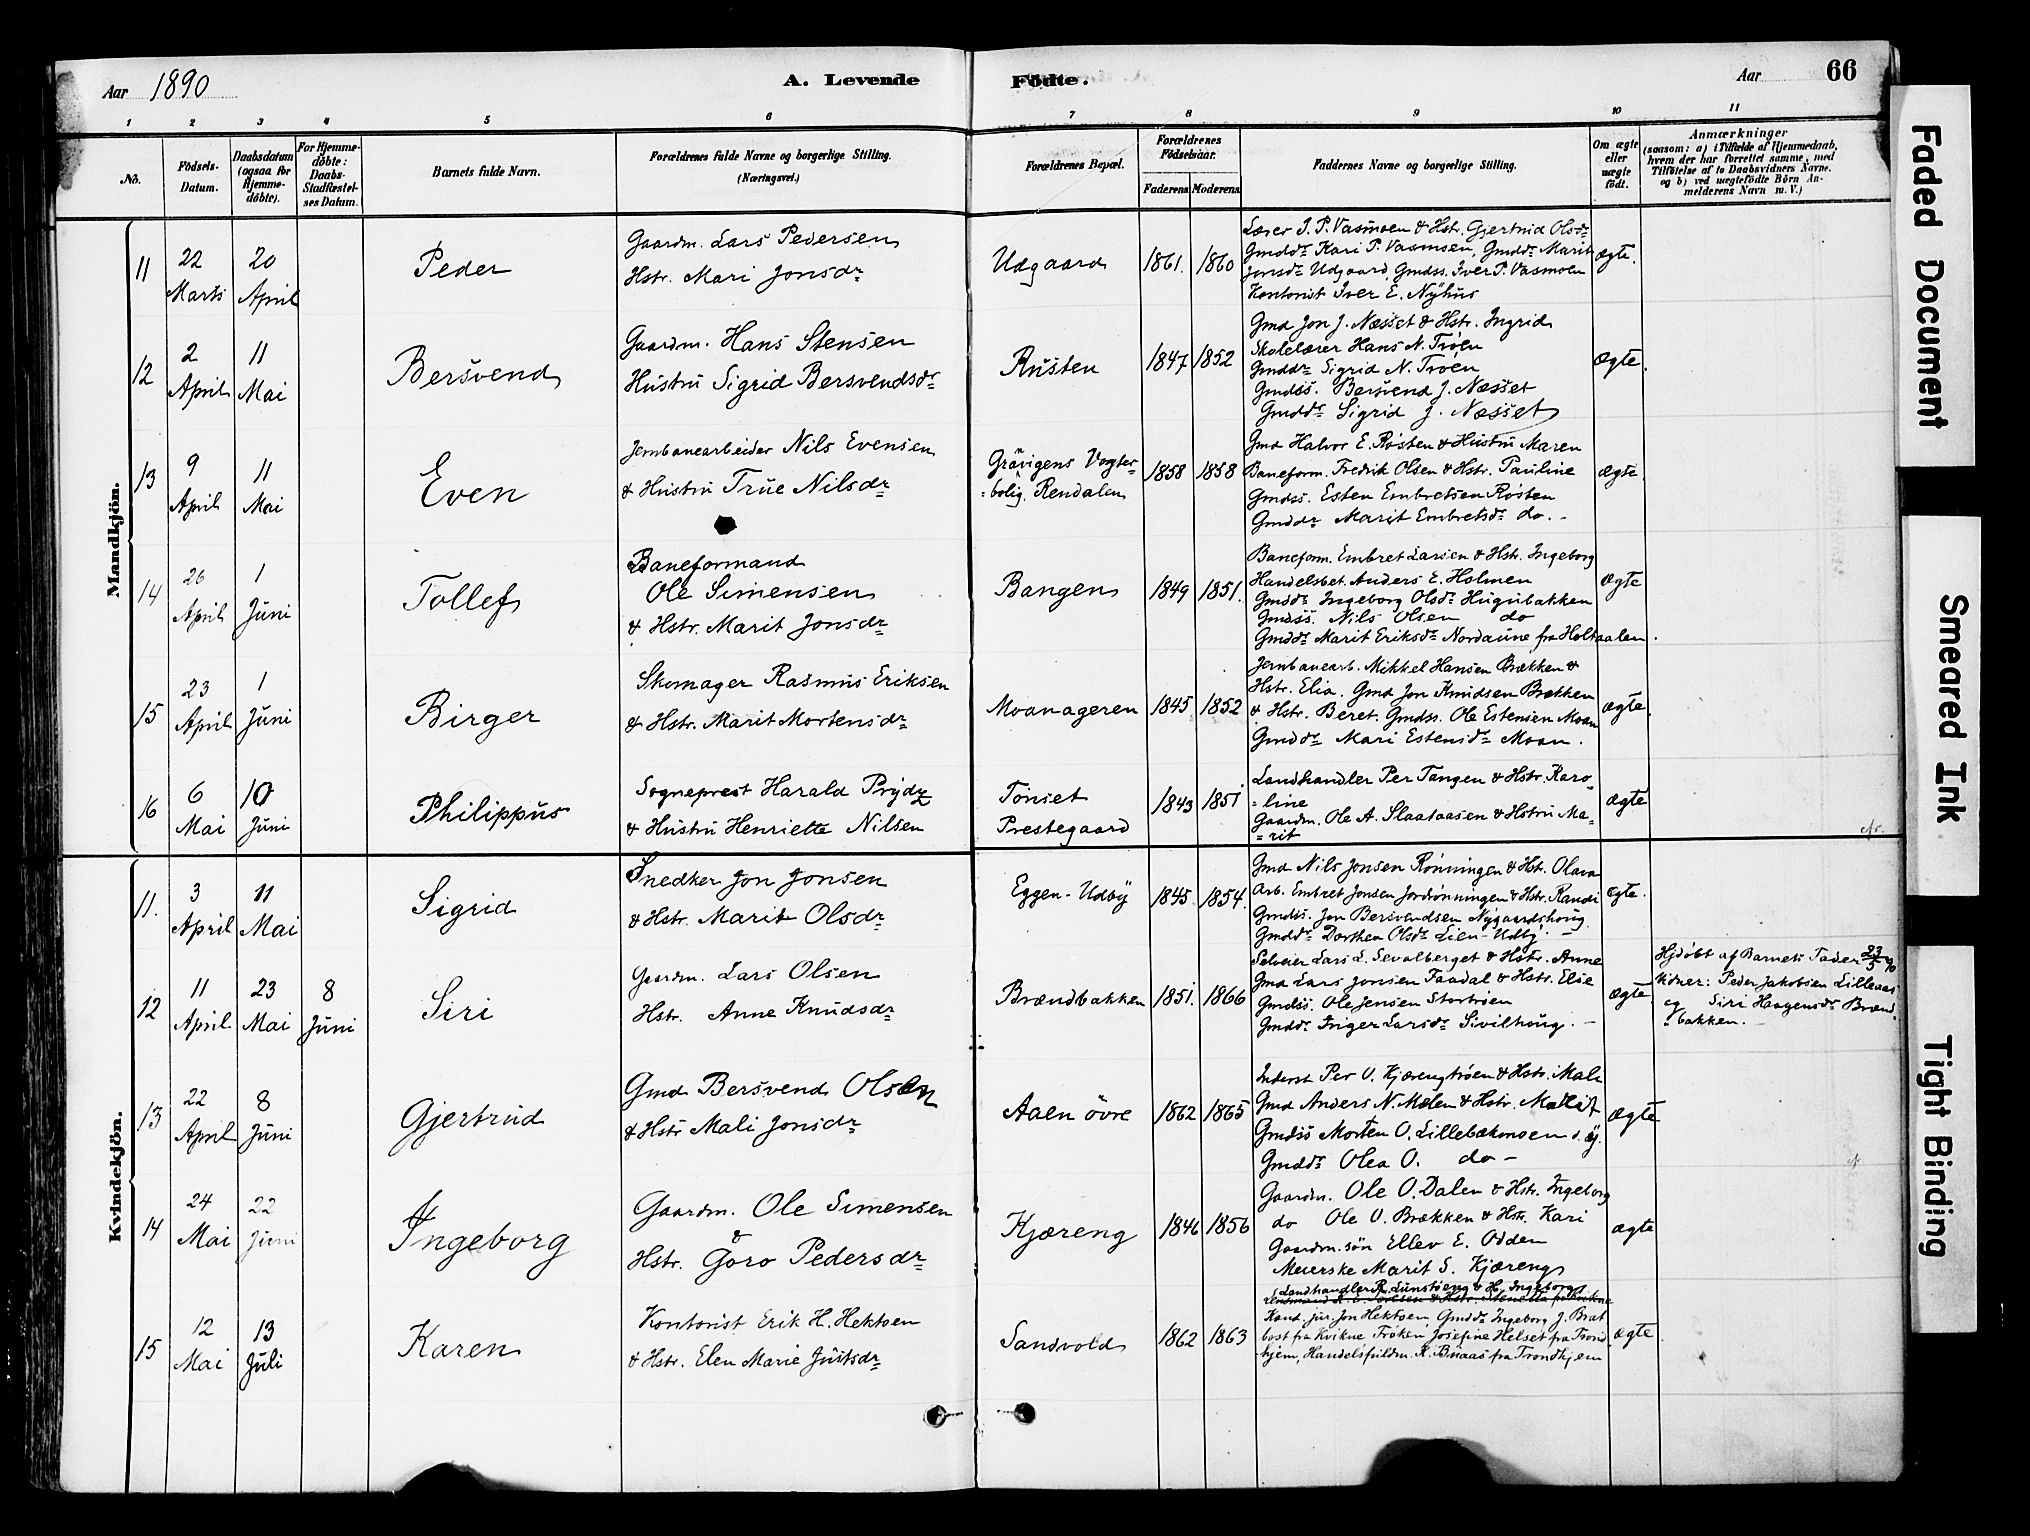 Aar 1890 A. Levende Födte. Aar 66
1 2 3 4 5 6 7 8 9 10 11
No.
Födsels-
Datum.
Daabsdatum
(ogsaa for
Hjemme-
döbte).
For Hjemme-
döbte:
Daabs-
Stadfæstel-
ses Datum.
Barnets fulde Navn.
Forældrenes fulde Navne og borgerlige Stilling.
(Næringsvei.)
Forældrenes Bopæl.
Forældrenes
Födselsaar.
Faderens Moderens
Faddernes Navne og borgerlige Stilling.
Om ægte
eller
uægte
födt.
Anmærkninger
(saasom: a) i Tilfælde af Hjemmedaab,
hvem der har forrettet samme, med
Tilföielse af to Daabsvidners Navne.
og b) ved uægtefödte Börn An-
melderens Navn m. V.)
Mandkjön.
11
22
Marts
20
April
Peder
Gaardm. Lars Pedersen
Hstr. Mari Jonsdr
Udgaard
1861. 1860
Lærer I. P. Vasmoen & Hstr. Gjertrud Olsdr
Gmddr Kari P. Vasmoen, Gmddr Marit
Jonsdr Udgaard, Gmdss. Iver P. Vasmoen
Kontorist Iver E. Nyhus
ægte.
12
2
April
11
Mai
Bersvend
Gaardm. Hans Stensen
Hustru Sigrid Bersvendsdr
Rusten
1847 1852
Gmd Jon J. Næsset & Hstr. Ingrid
Skolelærer Hans N. Trøen
Gmddr Sigrid N. Trøen
Gmdss. Bersvend J. Næsset
Gmddr Sigrid J. Næsset
ægte.
13
9
April
11
Mai
Even
Jernbanearbeider Nils Evensen
& Hustru True Nilsdr
Grøvigens Vogter-
=bolig, Rendalen
1858 1858
Gmd Halvor E. Røsten & Hustru Maren
Baneform. Fredrik Olsen & Hstr. Pauline
Gmdss. Esten Embretsen Røsten
Gmddr Marit Embretsdr do. -
ægte.
14
26
April
1
Juni
Tollef
Baneformand
Ole Simensen
& Hstr. Marit Jonsdr
Bangen
1849 1851.
Baneform. Embret Larsen & Hstr. Ingeborg
Handelsbet. Anders E. Holmen
Gmddr Ingeborg Olsdr Hugubakken
Gmdss. Nils Olsen do
Gmddr Marit Eriksdr Nordaune fra Holtaalen.
ægte
15
23
April
1
Juni
Birger
Skomager Rasmus Eriksen
& Hstr. Marit Mortensdr
Moanageren
1845 1852
Jernbanearb. Mikkel Hansen Brækken &
Hstr. Elia. Gmd Jon Knudsen Brækken
& Hstr. Beret. Gmdss. Ole Estensen Moan
Gmddr Mari Estensdr Moan.
ægte.
16
6
Mai
10
Juni
Philippus
Sogneprest Harald Prydz
& Hustru Henriette Nilsen
Tönset
Prestegaard
1843 1851
Landhandler Per Tangen & Hstr. Karo
=line
Gaardm. Ole A. Slaataasen & Hstru Ma-
=rit
ægte
cfr.
Kvindekjön.
11.
3
April
11
Mai
Sigrid
Snedker Jon Jonsen
& Hstr. Marit Olsdr
Eggen-Udby
1845. 1854.
Gmd Nils Jonsen Rønningen & Hst. Olava
Arb. Embret Jonsen Jordrønningen & Hstr. Randi
Gmdss. Jon Bersvendsen Nygaardshoug
Gmddr Dorthea Olsdr Lien-Udby. -
ægte.
12
11
April
23
Mai
8
Juni
Siri
Gaardm. Lars Olsen
Hstr. Anne Knudsdr
Brændbakken
1851. 1866
Selveier Lars L. Sevalberget & Hstr. Anne
Gmd Lars Jonsen Faadal & Hstr. Else
Gmdss. Ole Jensen Stortrøen
Gmddr Inger Larsdr Sivilhoug. -
ægte
Hjdøbt af Barnets Fader 23/5 90
Vidner: Peder Jakobsen Lilleaas
og Siri Haagensdr Brænd-
=bakken. -
13
22
April
8
Juni
Gjertrud
Gmd Bersvend Olsen
& Hstr Mali Jonsdr
Aaen övre
1862 1865
Inderst Per O. Kjærengtrøen & Hstr. Mali
Gmd Anders N. Moen & Hstr. Marit
Gmdss Morten O. Lillebækmoen
Gmddr Olea O. do -
ægte
cfr.
14
24
Mai
22
Juni
Ingeborg
Gaardm. Ole Simensen
&
Hstr. Goro Pedersdr
Kjæreng
1846 1856
Gaardm. Ole O. Dalen & Hstr. Ingeborg
do Ole O. Brækken & Hstr. Kari
Gaardm. søn Ellev E. Odden
Meierske Marit S. Kjæreng
ægte
15
12
Mai
13
Juli
Karen
Kontorist Erik H. Hektoen
& Hstr. Elen Marie Justsdr
Sandvold
1862 1863
Landhandler R. Lunstøeng & H. Ingeborg
Kand. jur. Jon Hektoen Gmddr Ingeborg J. Bræt
bost fra Kvikne Frøken Josefine Helset fra Trond
hjem, Handelsfuldm. K. Buaas fra Trondhjem
ægte.
Faded Document
Smeared Ink
Tight Binding